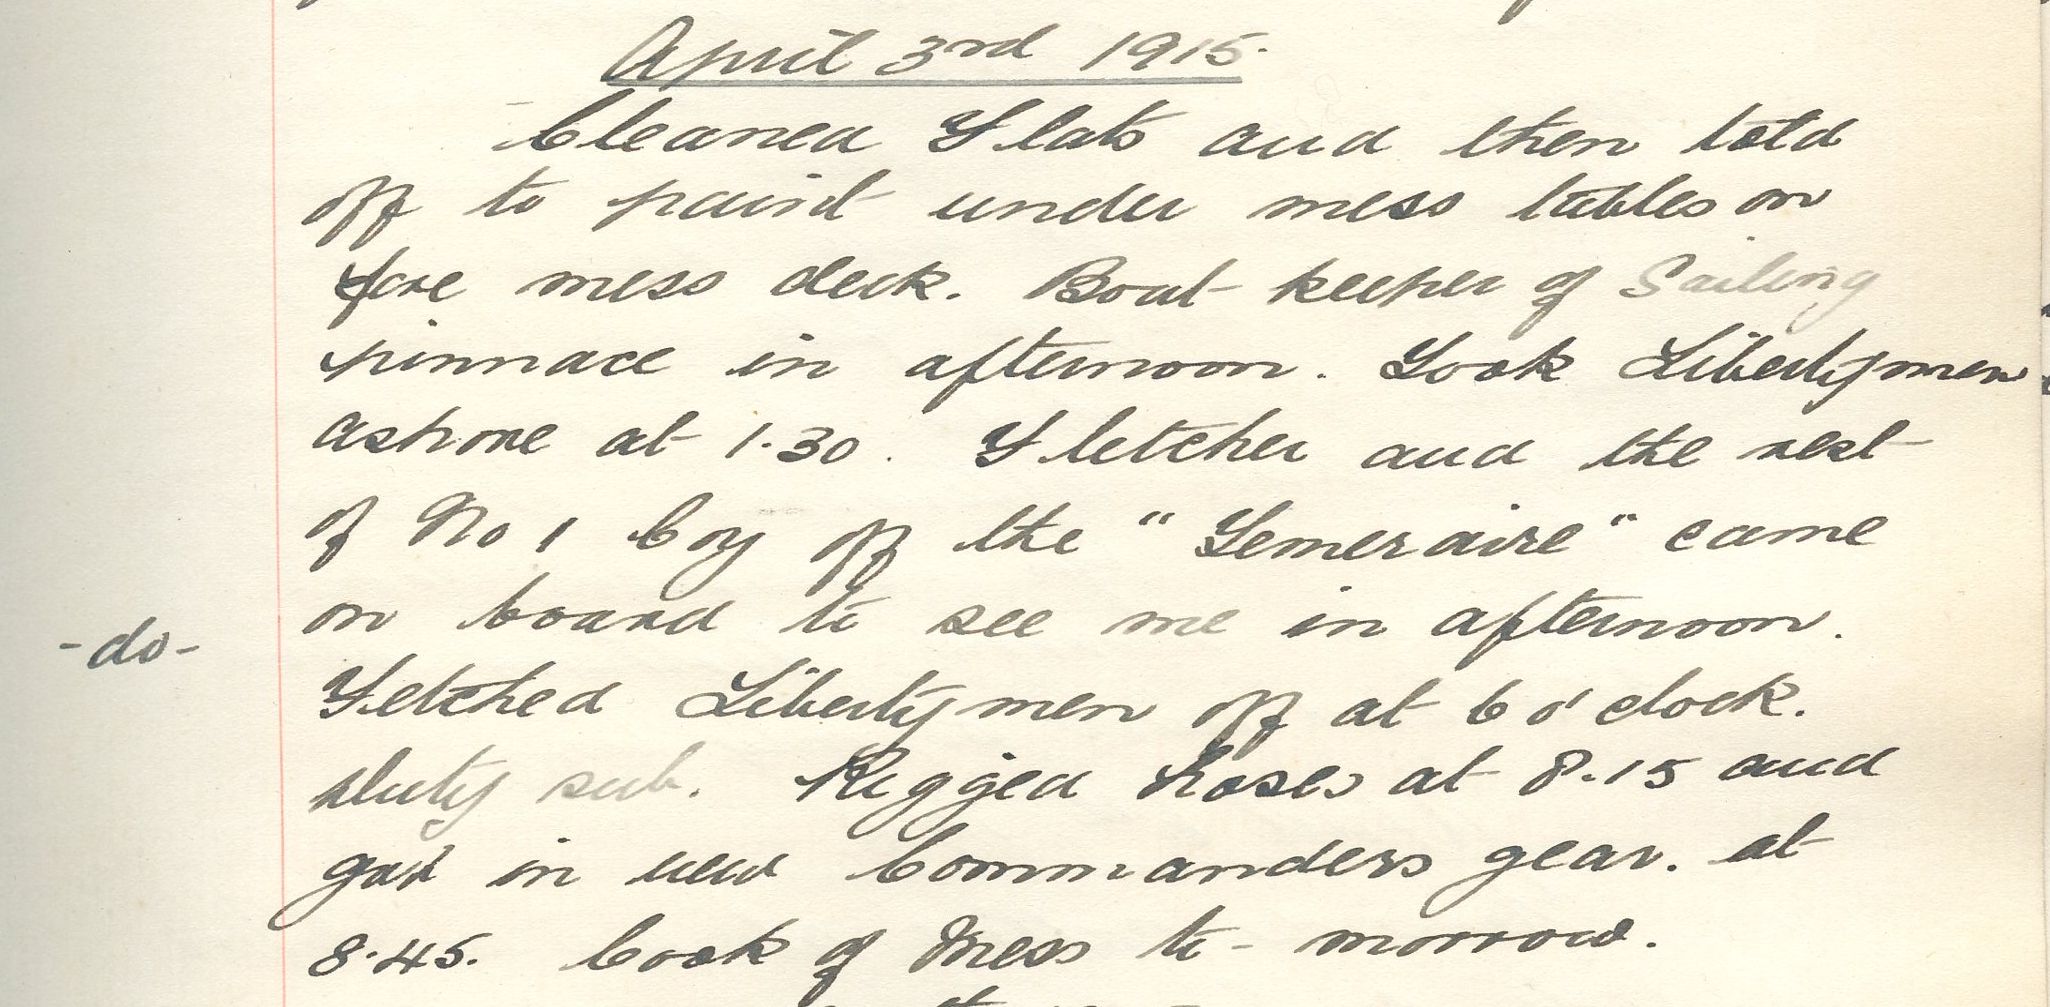 April 3rd 1915.
Cleaned Flats and then told
off to paint under mess tables on
fore mess deck. Boat keeper of Sailing
pinnace in afternoon. Took Libertymen
ashore at 1.30. Fletcher and the rest
of No 1 boy off the "Temeraire" came
on board to see me in afternoon.
-do-
Fetched Libertymen off at 6 o'clock.
Duty sub. Rigged hoses at 8.15 and
got in new Commanders gear. at
8.45. Cook of Mess to-morrow.